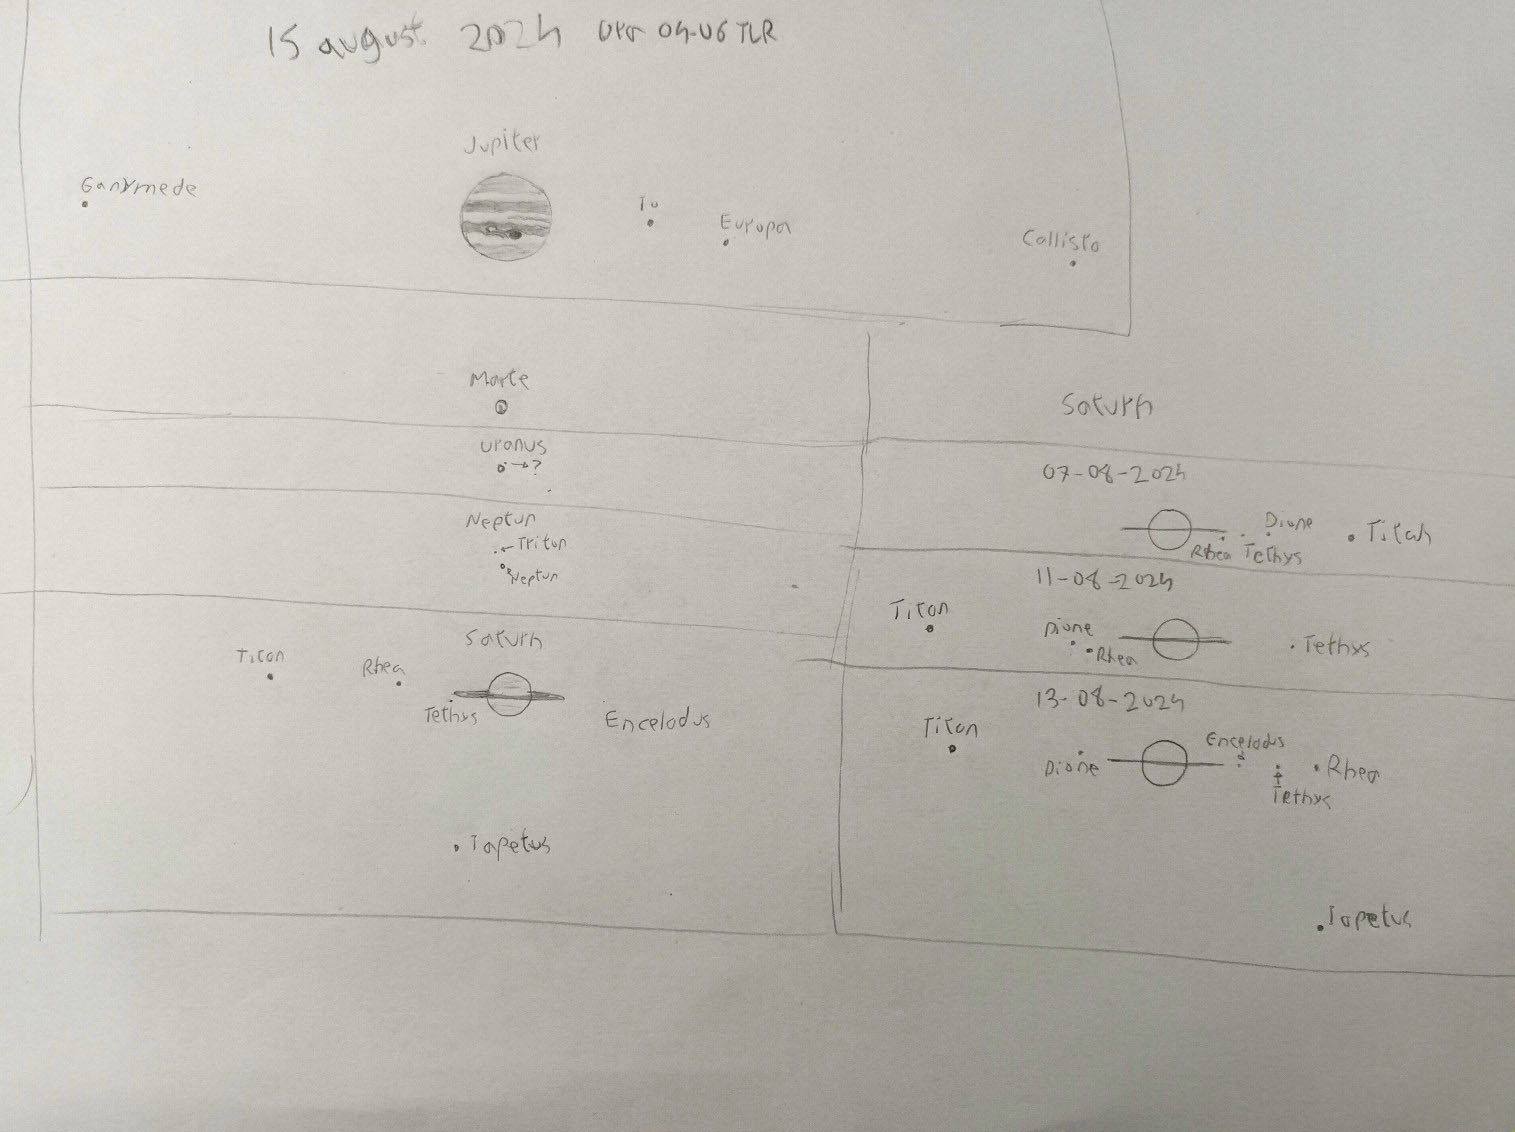 15 august 2024 Ora 04-06 TLR
Jupiter
Ganymede
Io
Europa
Callisto
Marte
Uranus
→?
Neptun
←Triton
Neptun
Saturn
Titan
Rhea
Tethys
Enceladus
Iapetus
Saturn
07-08-2024
Dione
Titan
Rhea Tethys
11-08-2024
Titan
Dione
Rhea
Tethys
13-08-2024
Titan
Enceladus
Dione
Rhea
Tethys
Iapetus